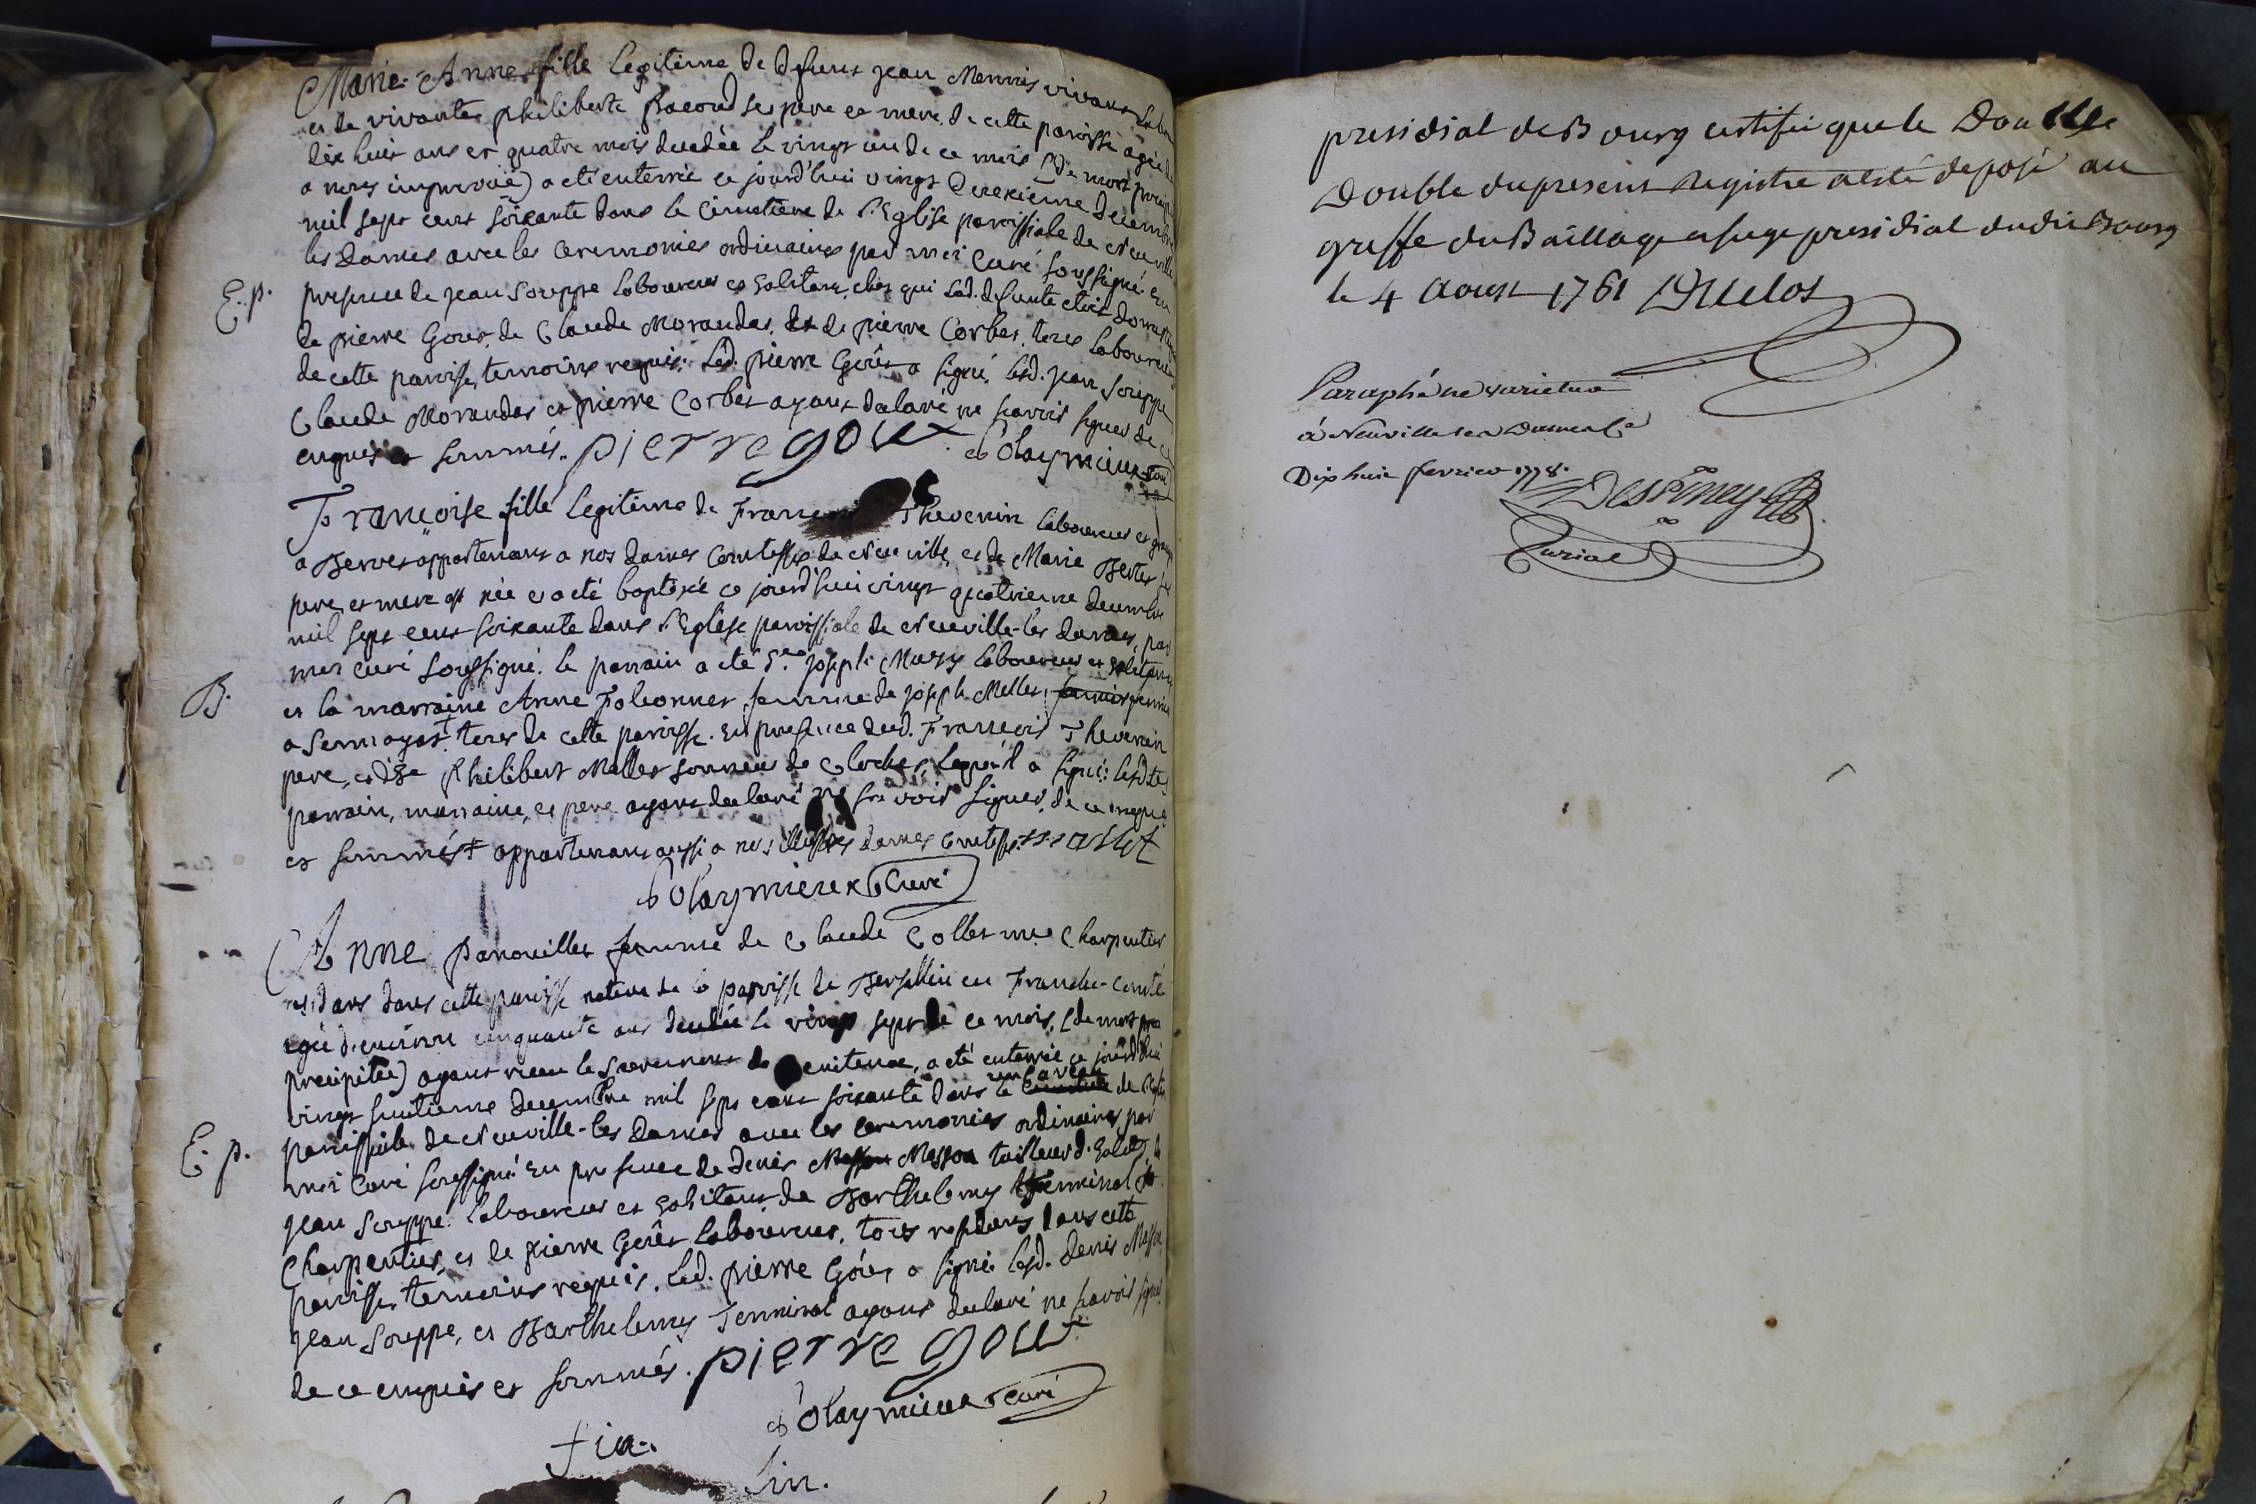 Marie Anne fille legitime de defunt jean Mennis vivant
et de vivante philiberte Bacoud ses pere et mere de cette paroisse agée de
dix huit ans et quatre mois decedée le vingt un de ce mois (de mort
a nous imprevüe) a eté enterrée ce jourd'hui vingt deuxieme decembre
mil sept cent soixante dans le cimetiere de l'Eglise paroissiale de neuville
les Dames avec les ceremonies ordinaires par moi curé soussigné. En
E. p.
presence de jean Souppe laboureur et Galitan chez qui lad. defunte etoit domestique
de pierre Goux, de Claude Morandas, et de pierre Corbet, tous laboureurs
de cette paroisse, temoins requis. Led. pierre Goûx a signé, lesd. jean Souppe
Claude Morandas et pierre Corbet ayant declaré ne sçavoir signer de ce
enquis et sommés. pierre goux
Françoise fille legitime de François Thevenin laboureur et
a Berves appartenant a nos dames Comtesses de neuville, et de Marie Bertet ses
pere et mere est née et a eté baptisée ce jourd'hui vingt quatrieme decembre
mil sept cent soixante dans l'Eglise paroissiale de neuville-les dames, par
moi curé soussigné. le parrain a eté joseph laboureur et
B.
et la marraine Anne femme de joseph Mellet
a tous de cette paroisse. En presence dud. François Thevenin
pere, et de Philibert Mallet sonneur de cloches, lequel a signé: lesdts
parrain, marraine, et pere ayant declaré ne sçavoir signer, de ce requis
et sommés + appartenant aussi a nos illustres dames Comtesses. mallet
Curé
Anne Panouillet femme de Claude Collet me Charpentier
residans dans cette paroisse native de la paroisse de en Franche-Comté
agée d'environ cinquante ans decedée le vingt sept de ce mois, (de mort
precipitée) ayant receu le sacrement de penitence, a eté enterrée ce jourd'hui
vingt huitieme decembre mil sept cent soixante dans de l'Eglise
E. p.
paroissiale de neuville-les Dames avec les ceremonies ordinaires, par
moi Curé soussigné En presence de denis Messon tailleur d'
jean Souppe laboureur et Galitan de Barthelemy Terminal
Charpentier, et de pierre Goûx laboureur, tous residans dans cette
paroisse, temoins requis. Led. pierre Goûx a signé. Lesd. denis
jean Souppe, et Barthelemy Terminal ayant declaré ne sçavoir signer
de ce enquis et sommés. pierre goux
curé
fin.
fin.
presidial de Bourg certifie que le Double
Double du present Registre a esté deposé au
greffe du Baillage et siege presidial dudit Bourg
le 4 Aoust 1761 Duclos
Paraphé ne varietur
à Neuville les Dames le
Dix huit fevrier 1778.
Curial